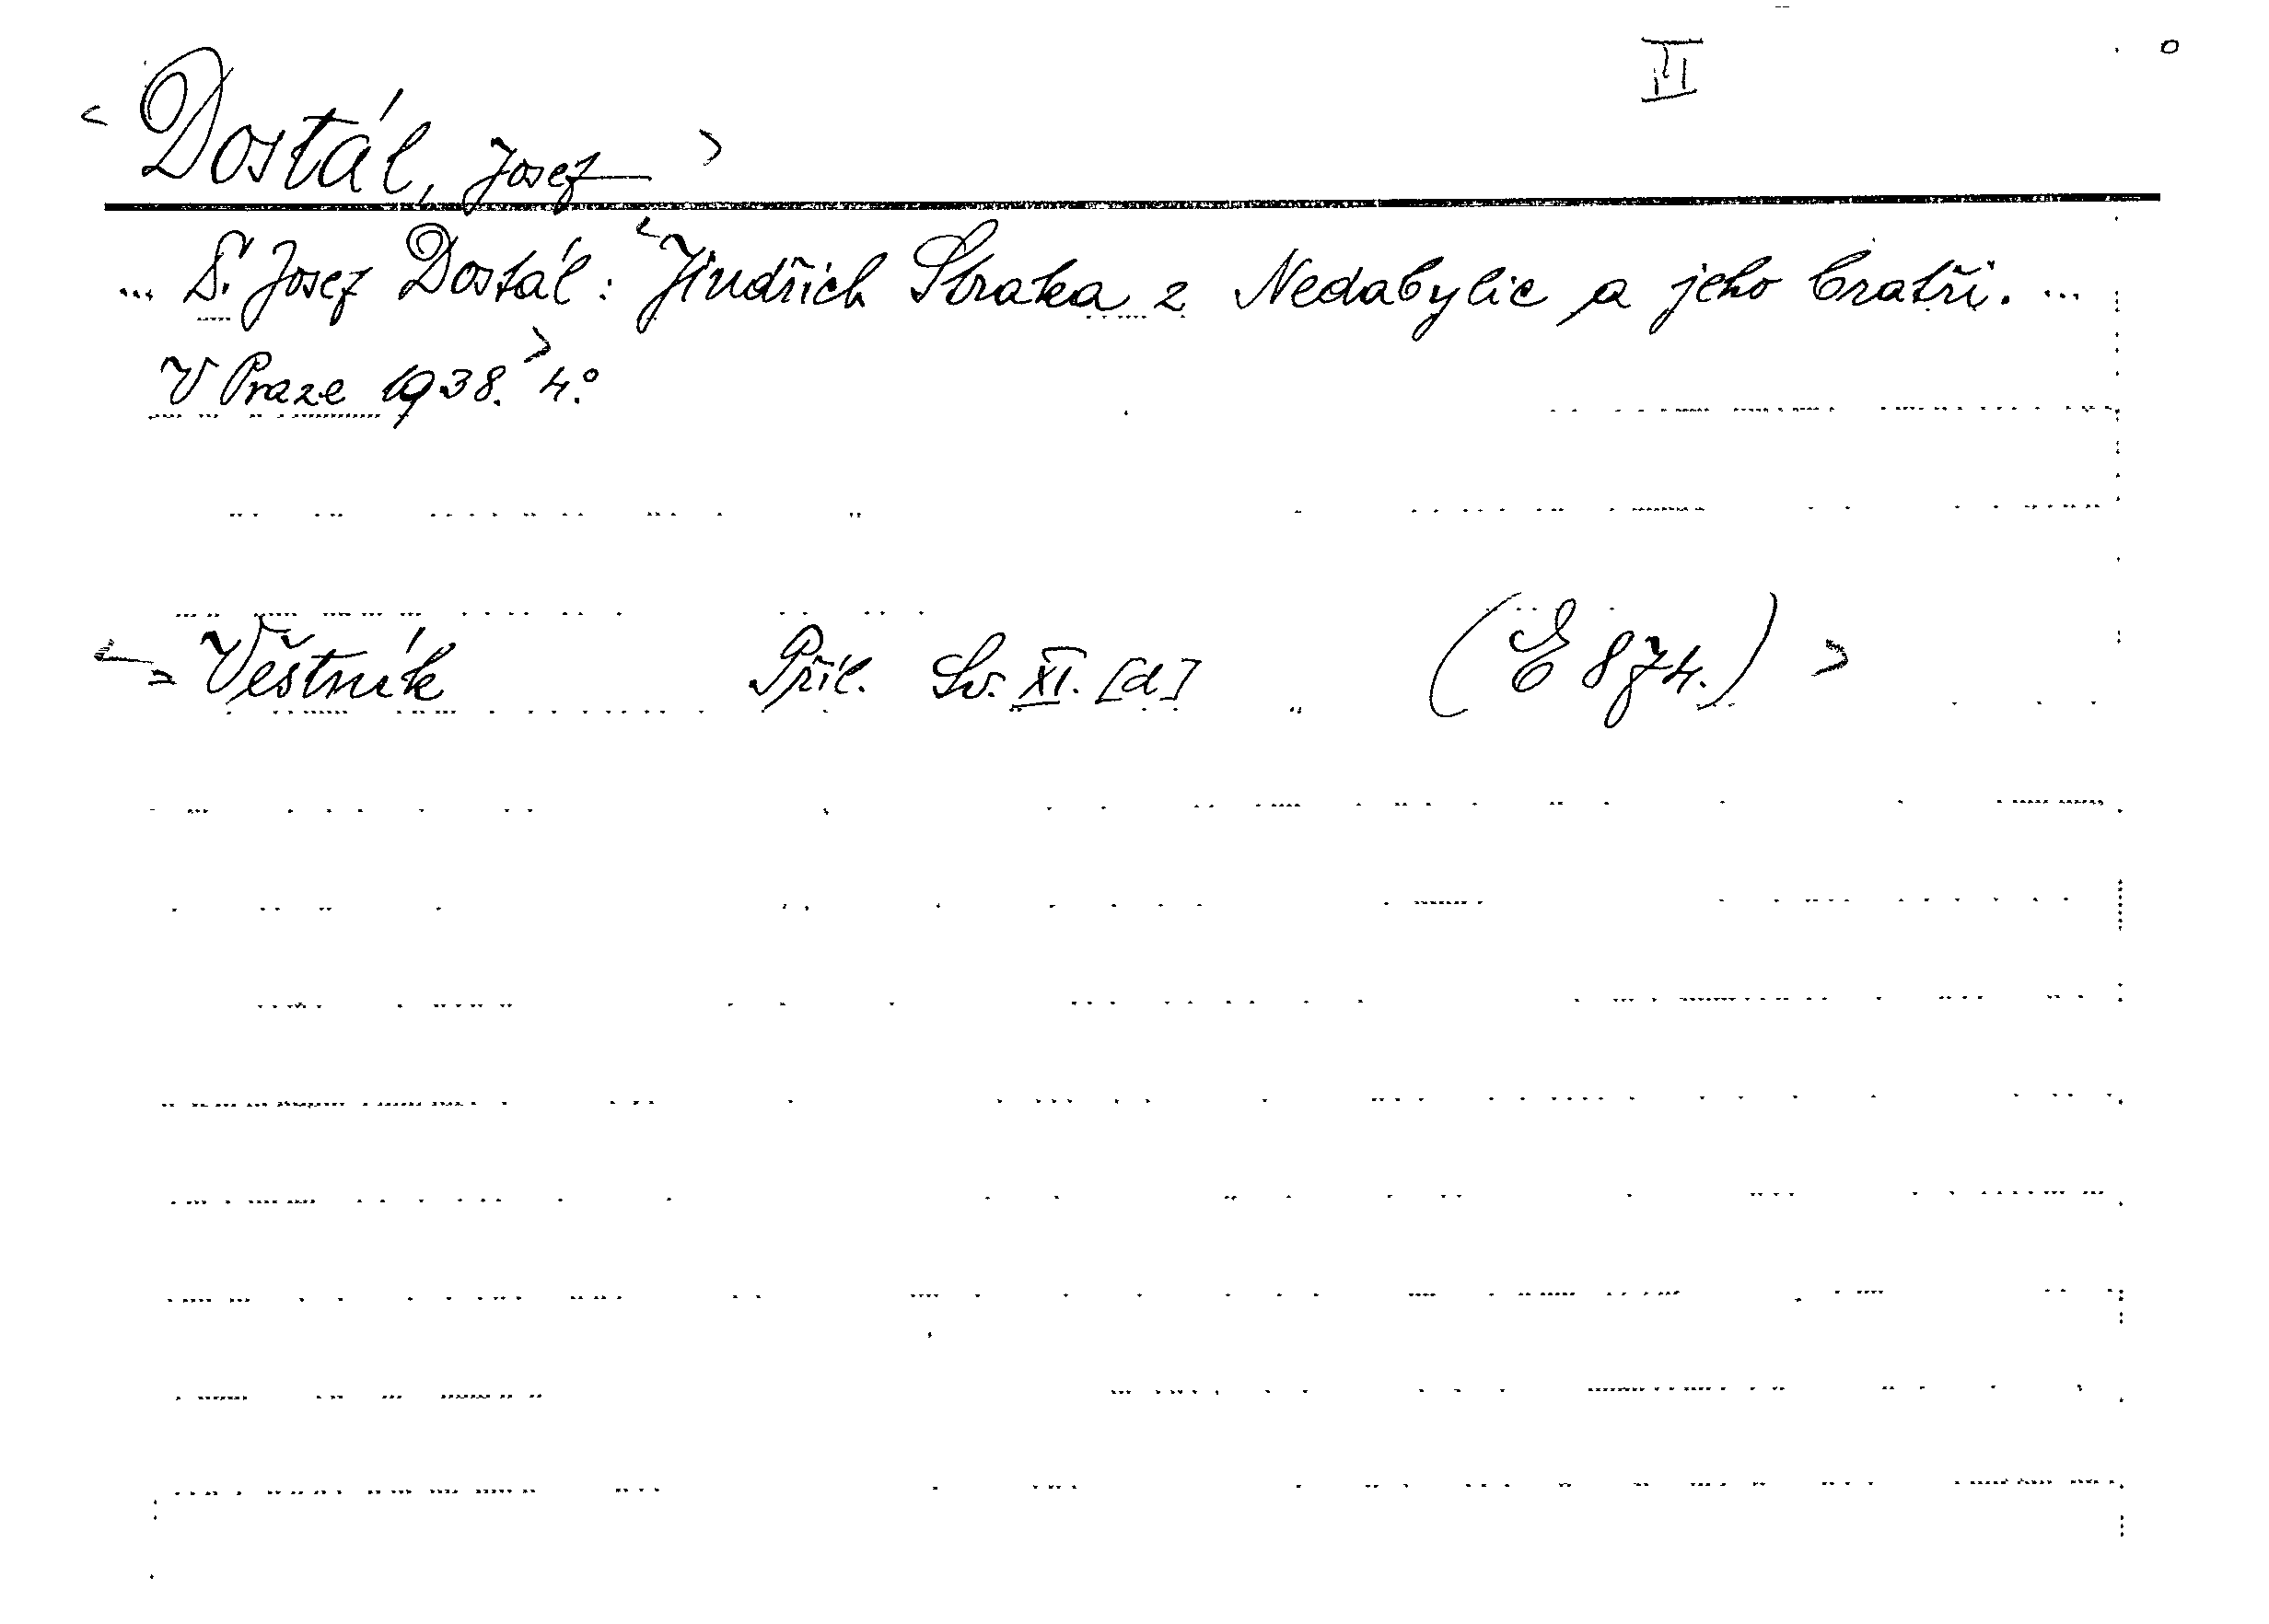 II
< Dostál, Josef >
... D. Josef Dostál: <Jindřich Straka z Nedabylic a jeho bratři. ...
V Praze 1938.> 4°.
Věstník Příl. Sv. XI. [d] (E 874.) >